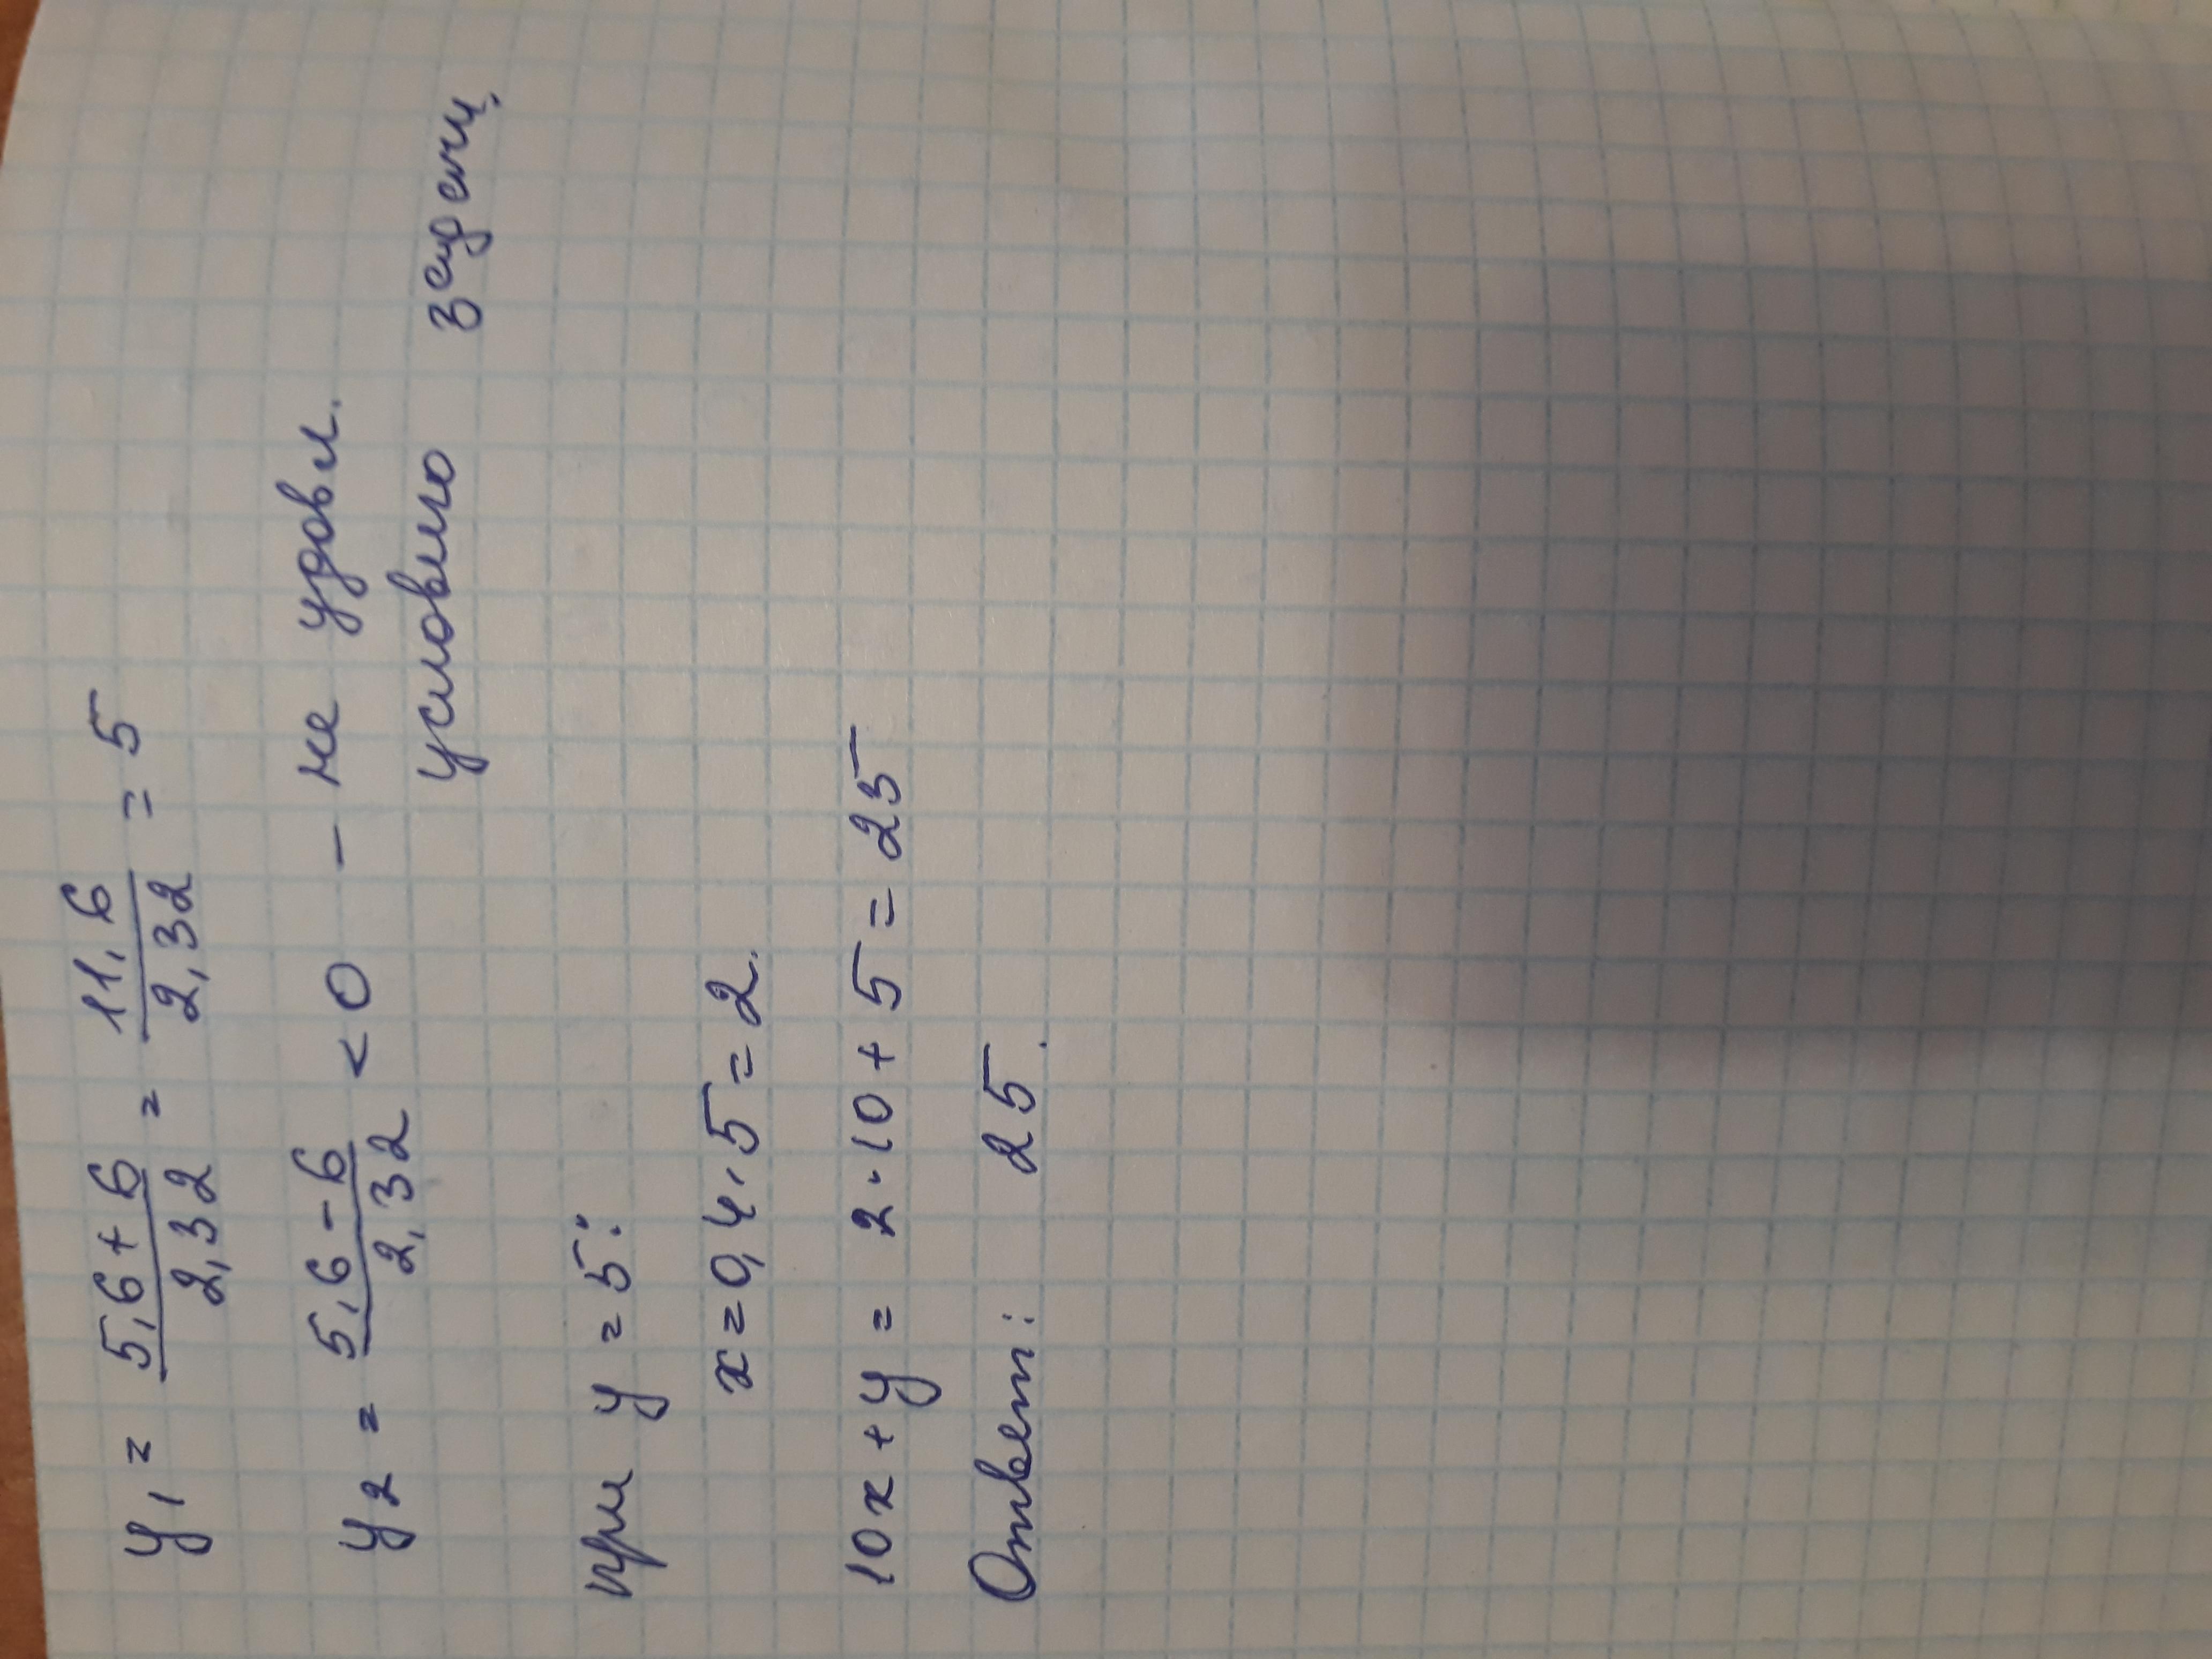 y₁ = (5,6 + 6)/2,32 = 11,6/2,32 = 5
y₂ = (5,6 - 6)/2,32 < 0 - не удовл.
условию задачи.
при y = 5:
x = 0,4 · 5 = 2.
10x + y = 2 · 10 + 5 = 25
Ответ: 25.